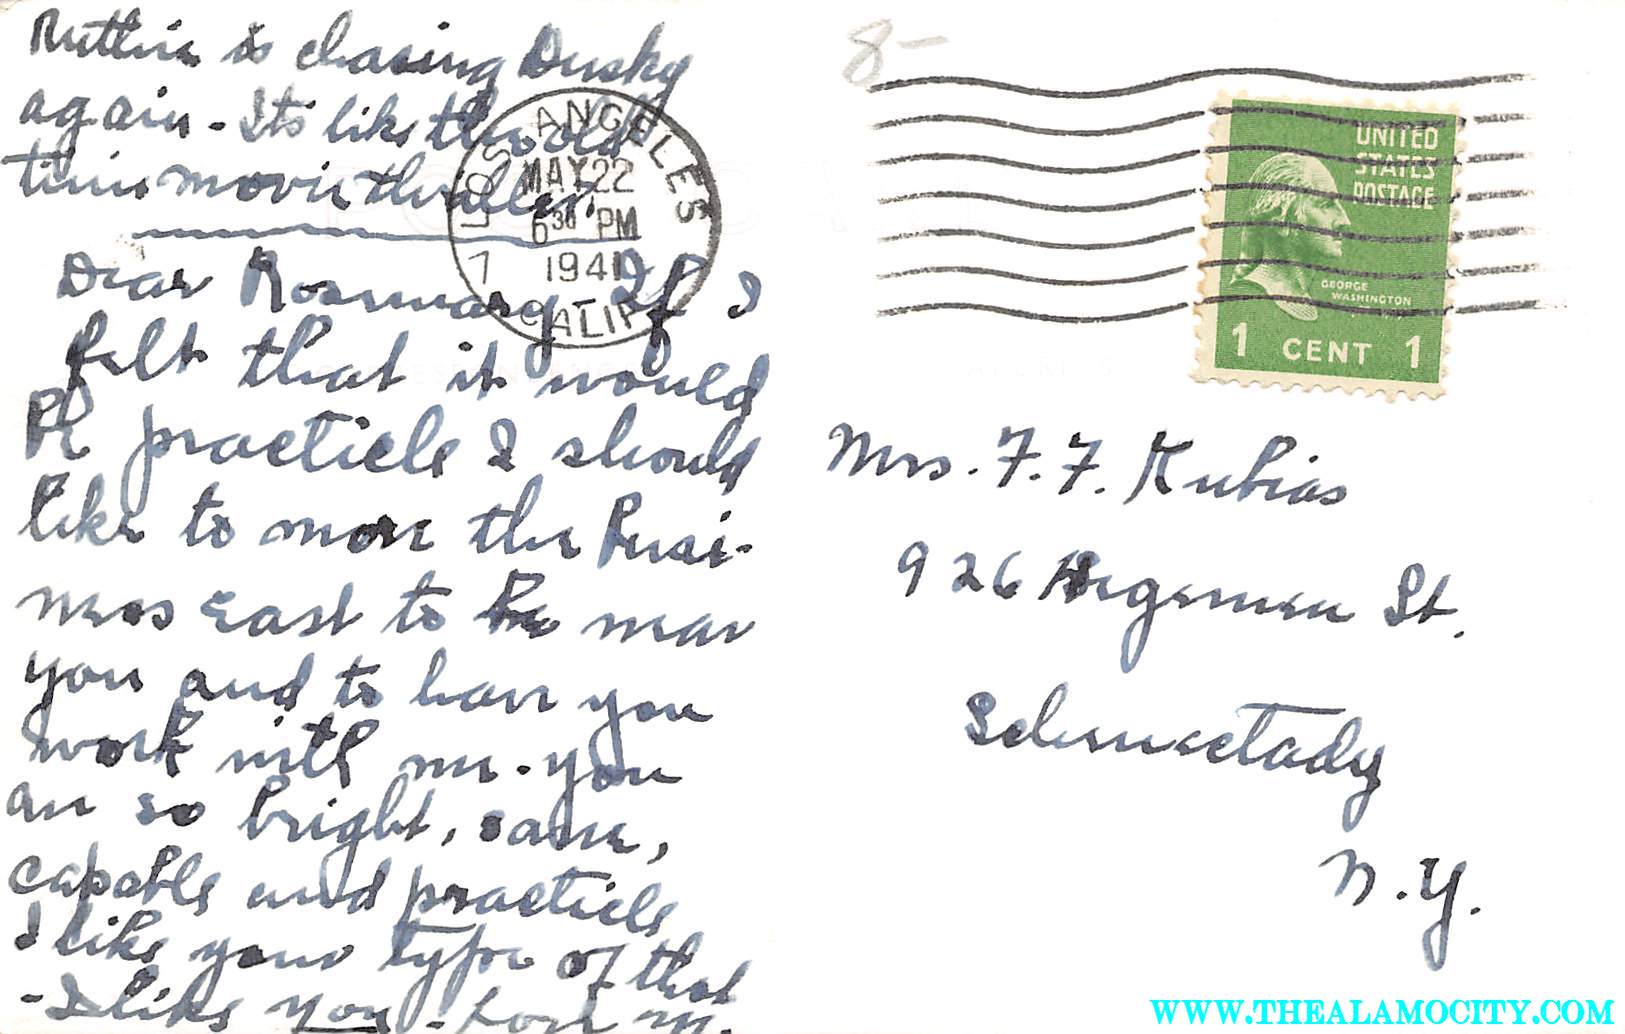 Ruthie is chasing Dusky
again - Its like the old
time movie thriller.
Dear Rosemary If I
felt that it would
be practicle I should
like to move the busi-
ness East to be near
you and to have you
work with me. you
are so bright, sane,
capable and practicle,
I like your type of that
- I like you - Love M.
8-
LOS ANGELES
MAY 22
6 30 PM
1941
CALIF.
1
UNITED
STATES
POSTAGE
GEORGE
WASHINGTON
1 CENT 1
Mrs. F. F. Kubias
926 Hegeman St.
Schenectady
N.Y.
WWW.THEALAMOCITY.COM